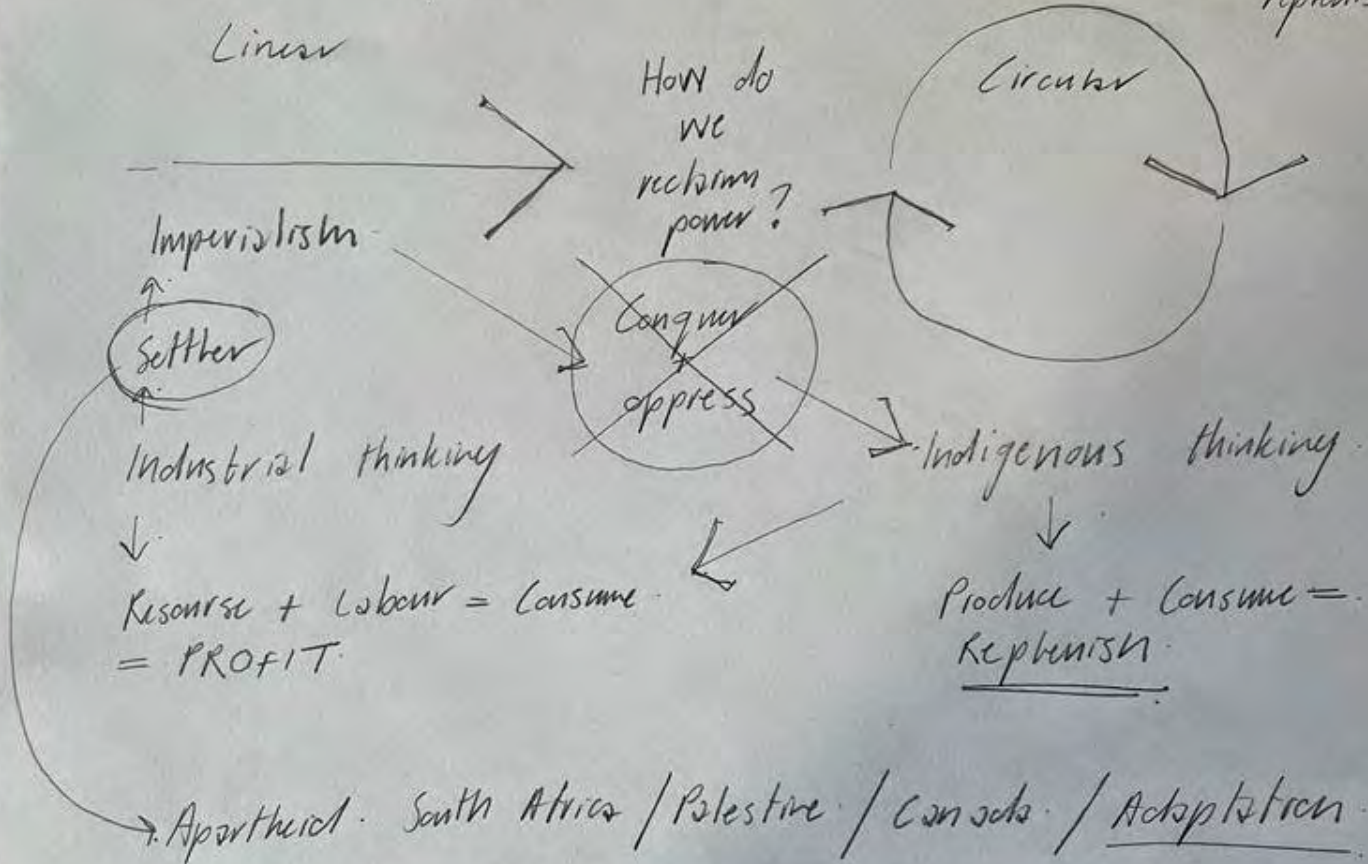 Linear
How do
we
reclaim
power?
Circular
Imperialism
Settler
Conquer
+
oppress
Industrial thinking
Indigenous thinking
Resourse + Labour = Consume
= PROFIT
Produce + Consume =
Replenish
Apartheid. South Africa / Palestine / Canada / Adaptation